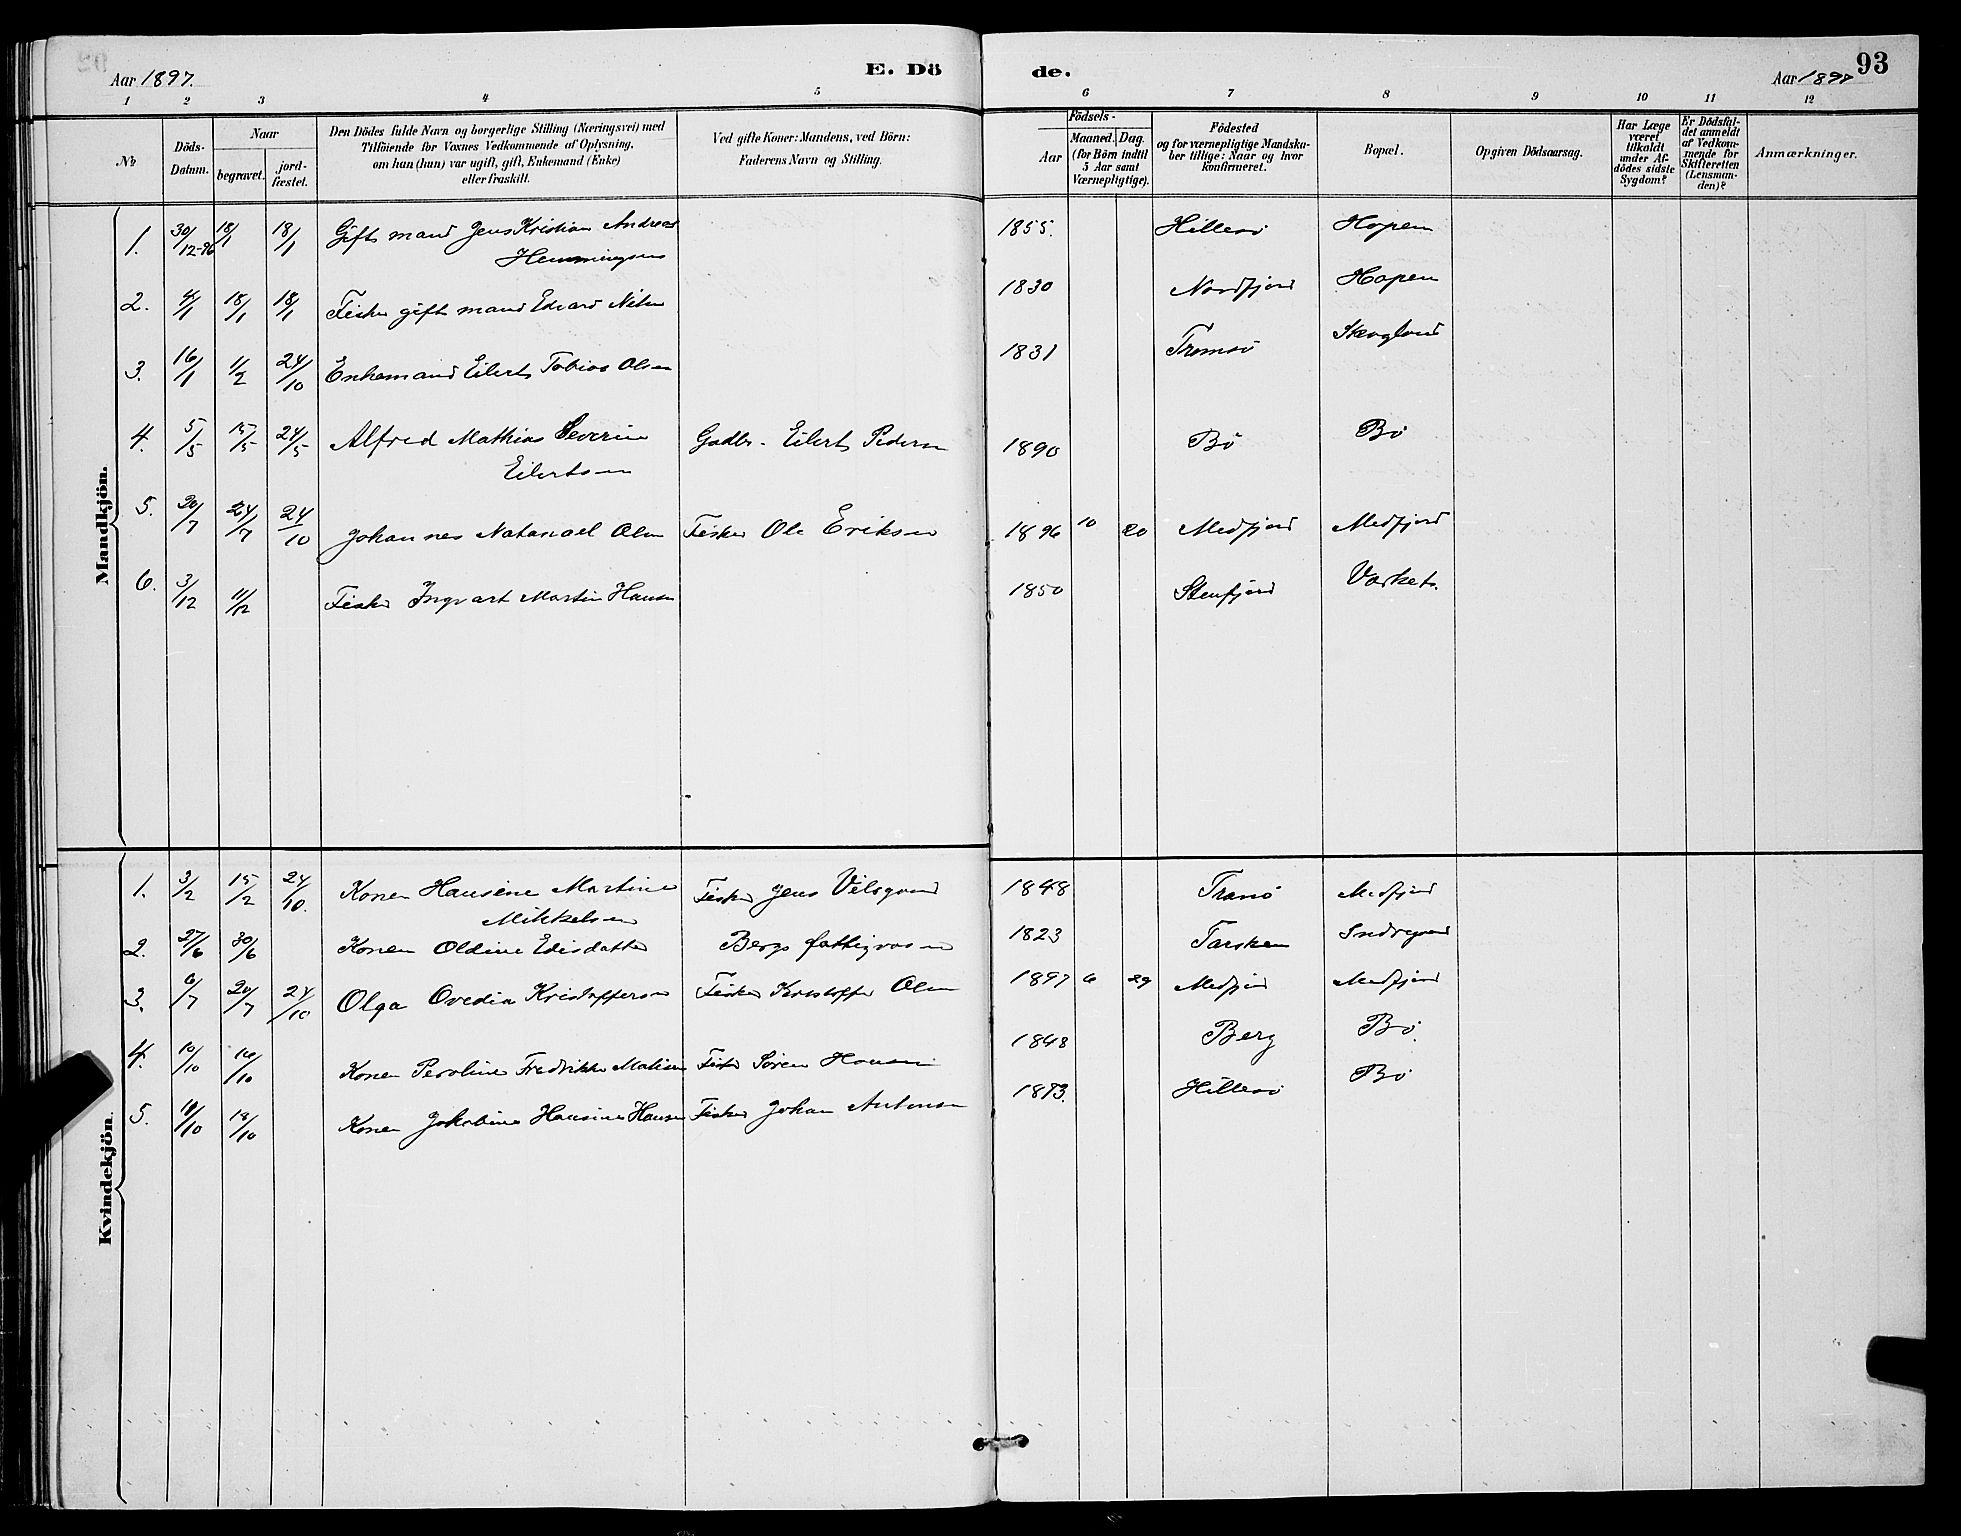 Aar 1897.
E. Dö
de.
Aar 1897
93
1 2 3 4 5 6 7 8 9 10 11 12
No
Döds-
Datum.
Naar
begravet.
jord-
fæstet.
Den Dödes fulde Navn og borgerlige Stilling (Næringsvei) med
Tilföiende for Voxnes Vedkommende af Oplysning,
om han (hun) var ugift, gift, Enkemand (Enke)
eller fraskilt.
Ved gifte Koner: Mandens, ved Börn:
Faderens Navn og Stilling.
Födsels-
Aar
Maaned.
Dag.
(for Börn indtil
5 Aar samt
Værnepligtige).
Födested
og for værnepligtige Mandska-
ber tillige: Naar og hvor
konfirmeret.
Bopæl.
Opgiven Dödsaarsag.
Har Læge
været
tilkaldt
under Af-
dödes sidste
Sygdom?
Er Dödsfal-
det anmeldt
af Vedkom-
mende for
Skifteretten
(Lensman-
den)?
Anmærkninger.
Mandkjön.
1. 30/12-96 18/1 18/1 Gift mand Jens Kristian Andreas 1855. Hillesö Hopen
Hemmingsen
2. 4/1 18/1 18/1 Fisker gift mand Edvard Nilsen 1830 Nordfjord Hopen
3. 16/1 1/2 24/10 Enkemand Eilert Tobias Olsen 1831 Tromsö Skogland
4. 5/5 15/5 24/5 Alfred Mathias Severin Gadbr. Eilert Pedersen 1890 Bö Bö
Eilertsen
5. 20/7 24/7 24/10 Johannes Natanael Olsen Fisker Ole Eriksen 1896 10 20 Medfjord Medfjord
6. 3/12 11/12 Fisker Ingvart Martin Hansen 1850 Stenfjord
Kvindekjön.
1. 3/2 15/2 24/10. Konen Hansine Martine Fisker Jens 1848 Tranö Medfjord
Mikkelsen
2. 27/6 30/6 Konen Oldine Bergs fattigvæsen 1823 Torsken
3. 6/7 20/7 24/10 Olga Ovedia Kristoffersen Fisker Kristoffer Olsen 1897 6 29 Medfjord Medfjord
4. 10/10 16/10 Konen Peroline Fredrikke Fisker Sören Hansen 1848 Berg Bö.
5. 11/10 18/10 Konen Jakobine Hansine Hansen Fisker Johan Antonsen 1873. Hillesö Bö